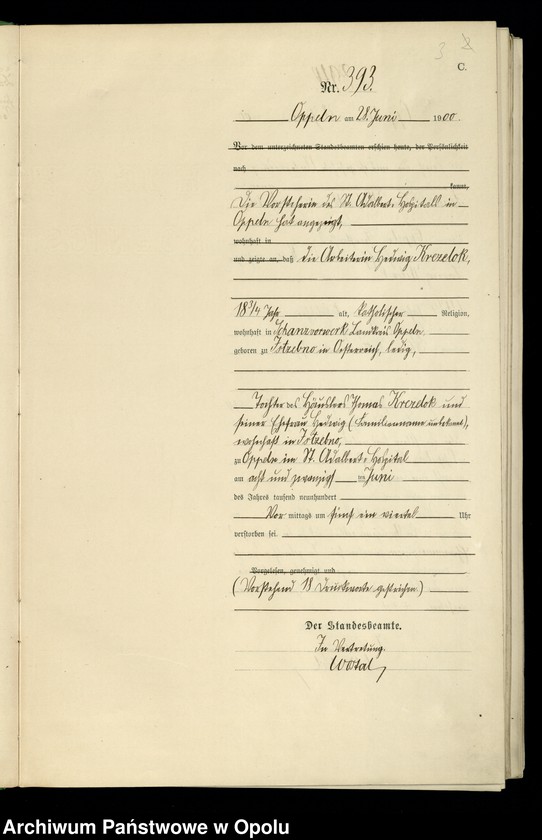 C.
Nr. 393.
Oppeln am 28. Juni 1900
Vor dem unterzeichneten Standesbeamten erschien heute, der Persönlichkeit
nach
kannt,
Die Vorsteherin des St. Adalbert-Hospitals in
Oppeln hat angezeigt,
wohnhaft in
und zeigte an, daß die Arbeiterin Hedwig Krezdok,
18 3/4 Jahr alt, katholischer Religion,
wohnhaft in Schanzvorwerk Landkreis Oppeln
geboren zu Istebno in Oesterreich, ledig,
Tochter des Häuslers Thomas Krezdok und
seiner Ehefrau Hedwig (Familienname unbekannt),
wohnhaft in Istebno,
zu Oppeln im St. Adalbert-Hospital
am acht und zwanzigsten Juni
des Jahres tausend neunhundert
Vor mittags um fünf ein viertel Uhr
verstorben sei.
Vorgelesen, genehmigt und
(Vorstehend 18 Druckworte gestrichen)
Der Standesbeamte.
In Vertretung.
Archiwum Państwowe w Opolu